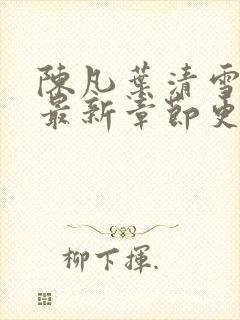 陳凡葉清雪
最新章節更
柳下揮.